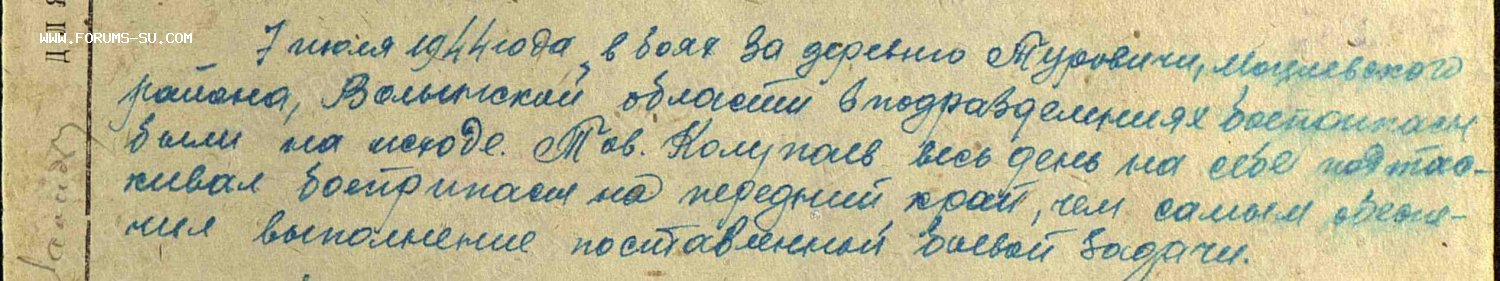 WWW.FORUMS-SU.COM
7 июля 1944 года, в боях за деревню Туровичи, Мацеевского
района, Волынской области в подразделениях боеприпасы
были на исходе. Тов. Колупаев весь день на себе подтас-
кивал боеприпасы на передний край, чем самым обеспе-
чил выполнение поставленной боевой задачи.